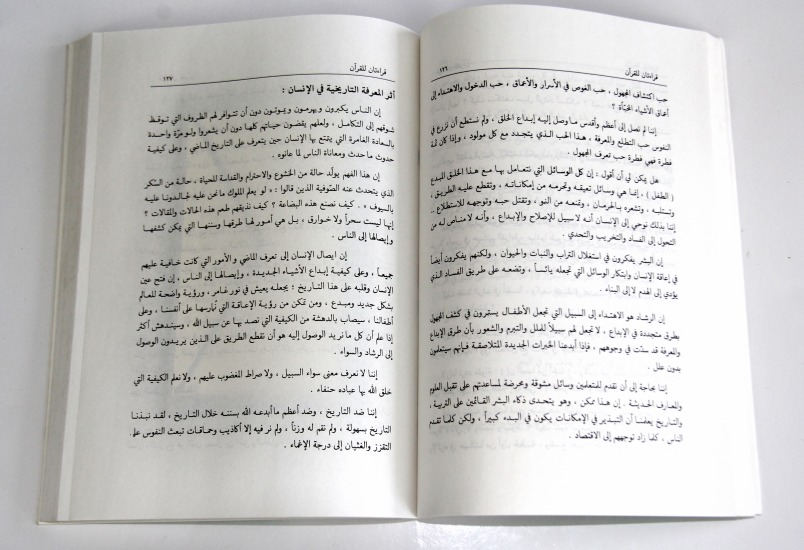 ١٢٦ قراءتان للقرآن
حب اكتشاف المجهول ، حب الغوص في الأسرار والأعماق ، حب الدخول والاهتداء إلى
أعماق الأشياء المخبأة ؟
إننا لم نصل إلى أعظم وأقدس ما وصل إليه إبداع الخلق ، ولم نستطع أن نزرع في
النفوس حب التطلع والمعرفة ، هذا الحب الذي يتجدد مع كل مولود ، وإذا كان ثمة
فطرة فهي فطرة حب تعرف المجهول .
هل يمكن لي أن أقول : إن كل الوسائل التي نتعامل بها مع هذا الخلق المبدع
( الطفل ) ، إنما هي وسائل تعيقه وتحرمه من إمكاناته ، وتقطع عليه الطريق ،
وتستلبه ، وتشعره بالحرمان ، وتمنعه من النمو ، وتقتل حبه وتوجهه للاستطلاع ..
إننا بذلك نوحي إلى الإنسان أنه لا سبيل للإصلاح والإبداع ، وأنه لا مناص له من
التحول إلى الفساد والتخريب والتحدي .
إن البشر يفكرون في استغلال التراب والنبات والحيوان ، ولكنهم يفكرون أيضاً
في إعاقة الإنسان وابتكار الوسائل التي تجعله يائساً ، وتضعه على طريق الفساد الذي
يؤدي إلى الهدم لا إلى البناء .
إن الرشاد هو الاهتداء إلى السبيل التي تجعل الأطفال يستمرون في كشف المجهول
بطرق متجددة في الإبداع ، لا تجعل لهم سبيلاً للملل والتبرم والشعور بأن طرق الإبداع
والمعرفة قد سدّت في وجوههم ، فإذا أبدعنا الخبرات الجديدة المتلاصقة فإنهم سيتعلمون
بدون ملل .
إننا بحاجة إلى أن نقدم للمتعلمين وسائل مشوقة ومحرضة لمساعدتهم على تقبل العلوم
والمعارف الحديثة . إن هذا ممكن ، وهو يتحدى ذكاء البشر القائمين على التربية ،
والتاريخ يعلمنا أن التبذير في الإمكانات يكون في البدء كبيراً ، ولكن كلما تقدم
الناس ، كلما زاد توجههم إلى الاقتصاد .
قراءتان للقرآن ١٢٧
أثر المعرفة التاريخية في الإنسان :
إن الناس يكبرون ويهرمون ويموتون دون أن تتوافر لهم الظروف التي توقظ
شوقهم إلى التكامل ، ولعلهم يقضون حياتهم كلها دون أن يشعروا ولو مرّة واحدة
بالسعادة الغامرة التي يتمتع بها الإنسان حين يتعرف على التاريخ الماضي ، وعلى كيفية
حدوث ما حدث ومعاناة الناس لما عانوه .
إن هذا الفهم يولّد حالة من الخشوع والاحترام والقداسة للحياة ، حالة من السّكر
الذي يتحدث عنه الصّوفية الذين قالوا : « لو يعلم الملوك ما نحن عليه لجالدونا عليه
بالسيوف » . كيف نصنع هذه البضاعة ؟ كيف نذيقهم طعم هذه الحالات والمقالات ؟
إنها ليست سحراً ولا خوارق ، بل هي أمور لها طرقها وسننها التي يمكن كشفها
وإيصالها إلى الناس .
إن ايصال الإنسان إلى تعرف الماضي والأمور التي كانت خافية عليهم
جميعاً ، وعلى كيفية إبداع الأشياء الجديدة ، وإيصالها إلى الناس ، إن فتح عين
الإنسان وقلبه على هذا التاريخ ؛ يجعله يعيش في نور غامر ، ورؤية واضحة للعالم
بشكل جديد ومبدع ، ومن تمكن من رؤية الإعاقة التي نمارسها على أنفسنا ، وعلى
أطفالنا ، سيصاب بالدهشة من الكيفية التي نصد بها عن سبيل الله ، وسيندهش أكثر
إذا علم أن كل ما نريد الوصول إليه هو أن نقطع الطريق على الذين يريدون الوصول
إلى الرشاد والسواء .
إننا لا نعرف معنى سواء السبيل ، ولا صراط المغضوب عليهم ، ولا نعلم الكيفية التي
خلق الله بها عباده حنفاء .
إننا ضد التاريخ ، وضد أعظم ما أبدعه الله بسننه خلال التاريخ ، لقد نبذنا
التاريخ بسهولة ، ولم نقم له وزناً ، ولم نر فيه إلا أكاذيب وحماقات تبعث النفوس على
التقزز والغثيان إلى درجة الإغماء .